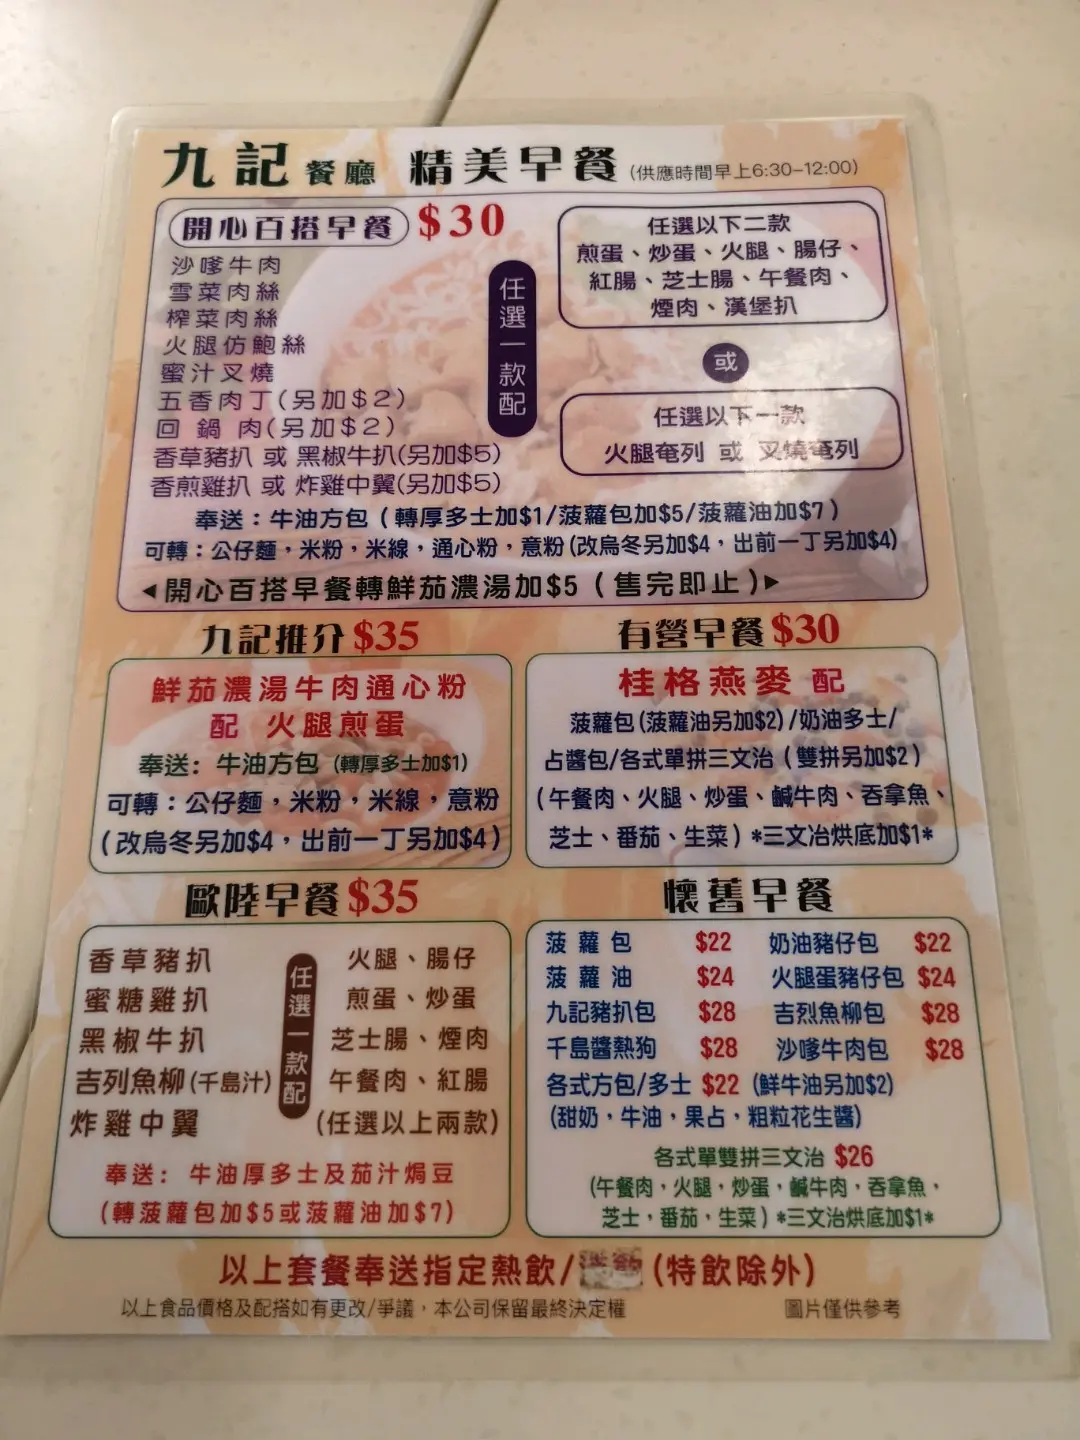 九記餐廳 精美早餐 (供應時間早上6:30-12:00)
開心百搭早餐 $30
沙嗲牛肉
雪菜肉絲
榨菜肉絲
火腿仿鮑絲
蜜汁叉燒
五香肉丁(另加$2)
回鍋肉(另加$2)
香草豬扒 或 黑椒牛扒(另加$5)
香煎雞扒 或 炸雞中翼(另加$5)
任選一款配
任選以下二款
煎蛋、炒蛋、火腿、腸仔、
紅腸、芝士腸、午餐肉、
煙肉、漢堡扒
或
任選以下一款
火腿奄列 或 叉燒奄列
奉送：牛油方包（轉厚多士加$1/菠蘿包加$5/菠蘿油加$7）
可轉：公仔麵，米粉，米線，通心粉，意粉(改烏冬另加$4，出前一丁另加$4)
◀開心百搭早餐轉鮮茄濃湯加$5（售完即止）▶
九記推介 $35
鮮茄濃湯牛肉通心粉
配 火腿煎蛋
奉送：牛油方包（轉厚多士加$1）
可轉：公仔麵，米粉，米線，意粉
(改烏冬另加$4，出前一丁另加$4)
有營早餐 $30
桂格燕麥 配
菠蘿包(菠蘿油另加$2)/奶油多士/
占醬包/各式單拼三文治（雙拼另加$2）
(午餐肉、火腿、炒蛋、鹹牛肉、吞拿魚、
芝士、番茄、生菜）*三文治烘底加$1*
歐陸早餐 $35
香草豬扒
蜜糖雞扒
黑椒牛扒
吉列魚柳(千島汁)
炸雞中翼
任選一款配
火腿、腸仔
煎蛋、炒蛋
芝士腸、煙肉
午餐肉、紅腸
(任選以上兩款)
奉送：牛油厚多士及茄汁焗豆
(轉菠蘿包加$5或菠蘿油加$7)
懷舊早餐
菠蘿包 $22 奶油豬仔包 $22
菠蘿油 $24 火腿蛋豬仔包 $24
九記豬扒包 $28 吉列魚柳包 $28
千島醬熱狗 $28 沙嗲牛肉包 $28
各式方包/多士 $22 (鮮牛油另加$2)
(甜奶，牛油，果占，粗粒花生醬)
各式單雙拼三文治 $26
(午餐肉，火腿，炒蛋，鹹牛肉，吞拿魚，
芝士，番茄，生菜）*三文治烘底加$1*
以上套餐奉送指定熱飲/ (特飲除外)
以上食品價格及配搭如有更改/爭議，本公司保留最終決定權
圖片僅供參考